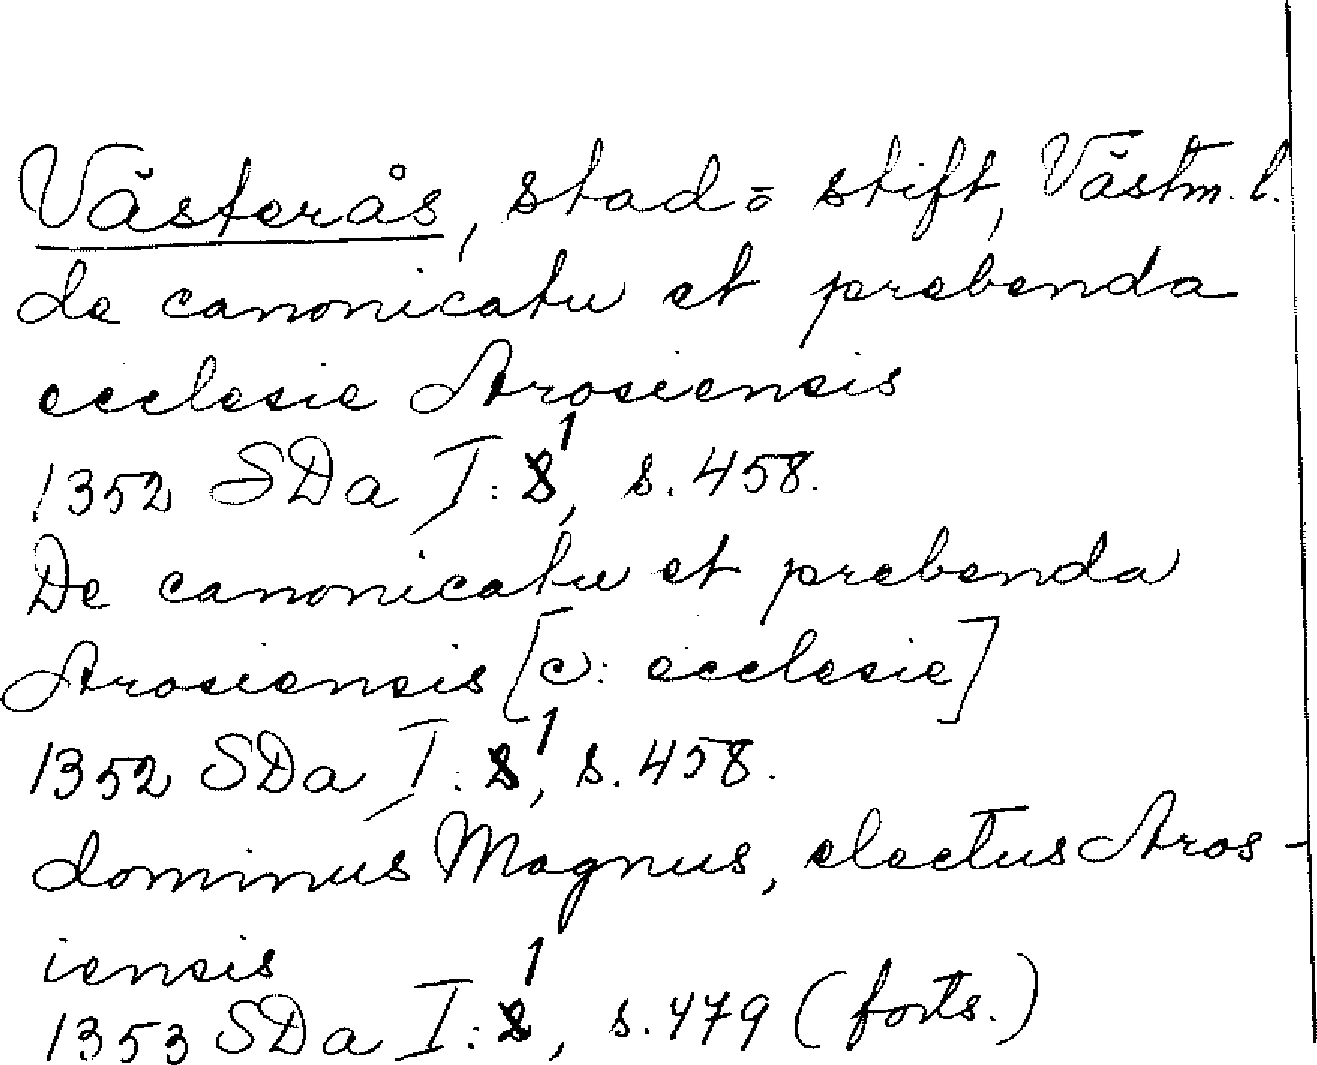 Västerås, stad o stift, Västm. l.
de canonicatu et prebenda
ecclesie Arosiensis
1352 SDa I: 1, s. 458.
De canonicatu et prebenda
Arosiensis [c: ecclesie]
1352 SDa I: 1, s. 458.
dominus Magnus, electus Aros-
iensis
1353 SDa I: 1, s. 479 (forts.)